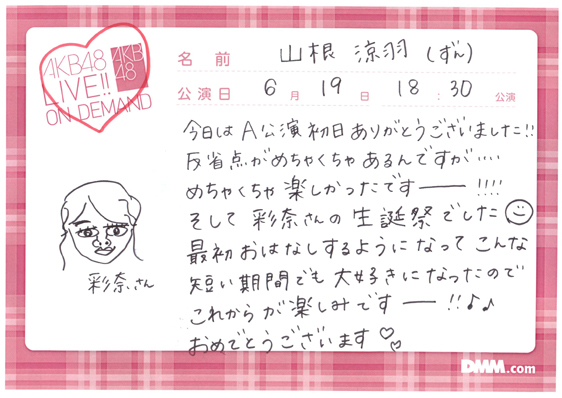 AKB48
LIVE!!
ON DEMAND
AKB
48
名前 山根 涼羽 (ずん)
公演日 6月 19日 18:30 公演
今日は A公演 初日 ありがとうございました!!
反省点がめちゃくちゃ あるんですが‥‥
めちゃくちゃ 楽しかったですー!!!!
そして 彩奈さんの 生誕祭でした
最初 おはなしするようになって こんな
短い 期間でも 大好きになったので
これからが 楽しみですー!!♪♪
おめでとうございます♡♡
彩奈さん
DMM.com